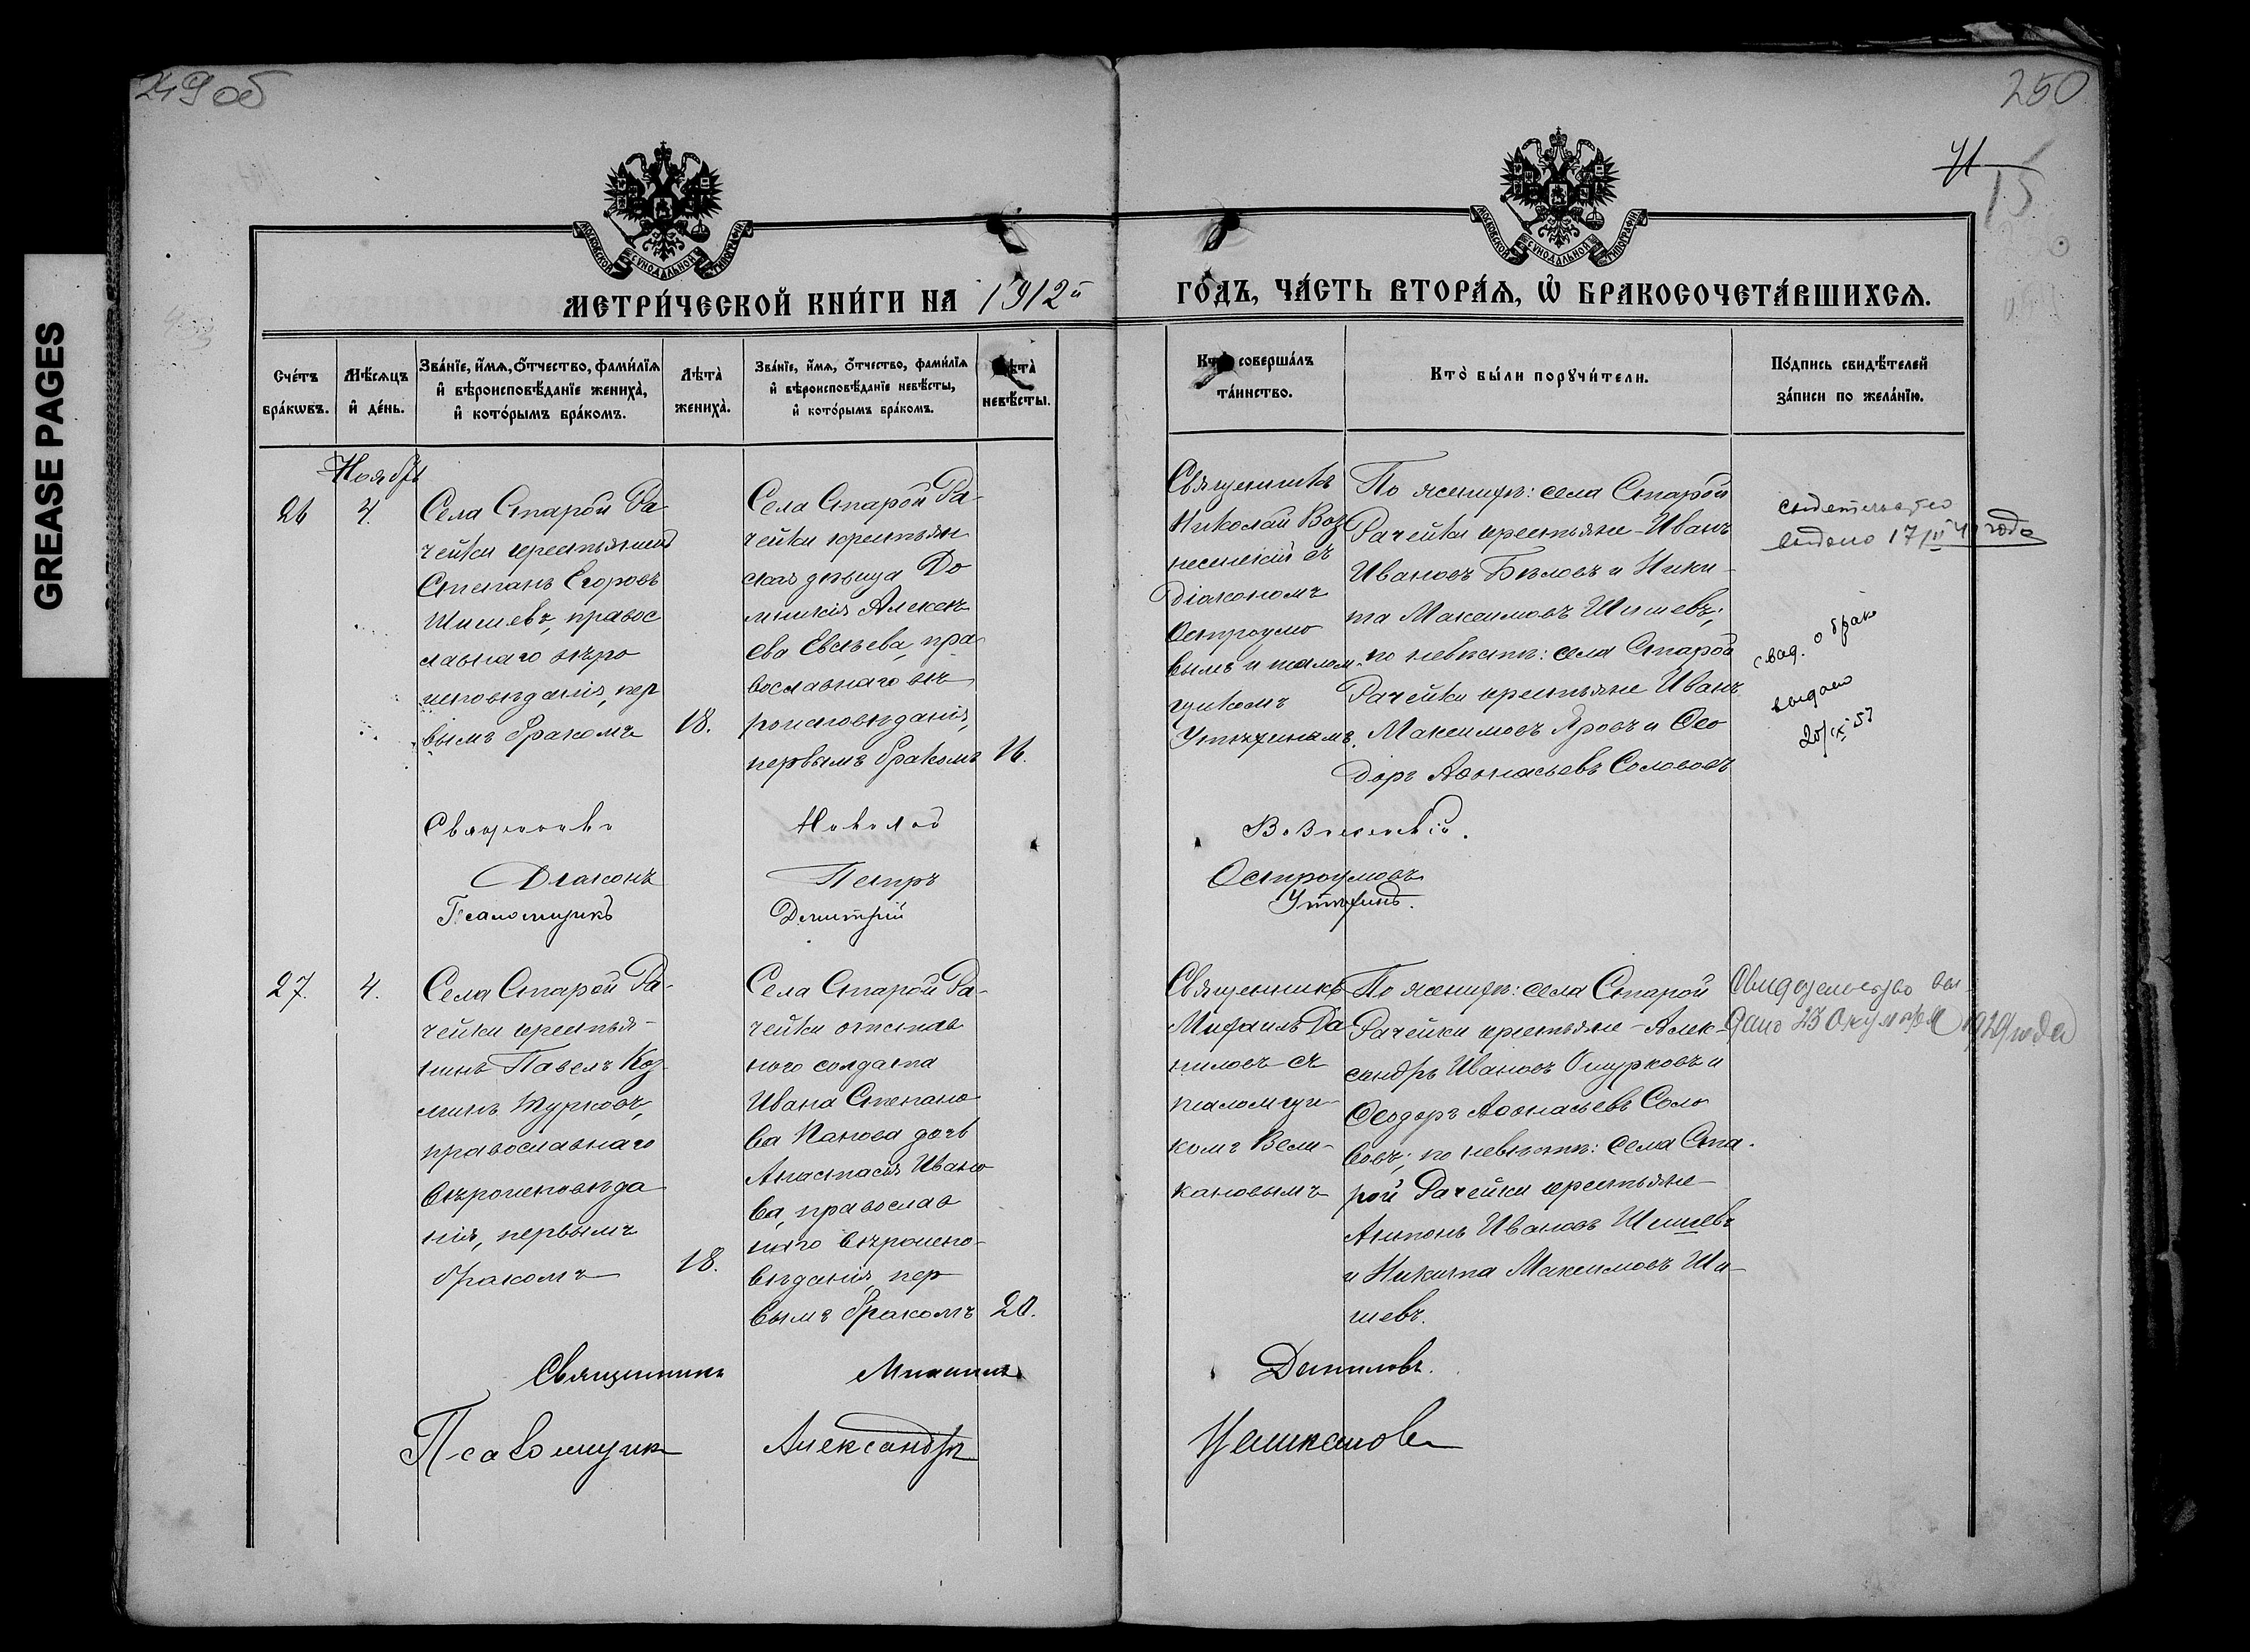 249 об
250
41
15
GREASE PAGES
МОСКОВСКОЙ СѴНОДАЛЬНОЙ ТИПОГРАФІИ
МОСКОВСКОЙ СѴНОДАЛЬНОЙ ТИПОГРАФІИ
МЕТРИ́ЧЕСКОЙ КНИ́ГИ НА 1912й
ГО́ДЪ, ЧА́СТЬ ВТОРА́Ѧ, Ѡ БРАКОСОЧЕТА́ВШИХСѦ.
Сче́тъ
бра́кѡвъ.
Мѣ́сяцъ
и де́нь.
Зва́нїе, и́мѧ, о́тчество, фами́лїѧ
и вѣроисповѣ́данїе жениха̀,
и кото́рымъ бра́комъ.
Лѣта̀
жениха̀.
Зва́нїе, и́мѧ, о́тчество, фами́лїѧ
и вѣроисповѣ́данїе невѣ́сты,
и кото́рымъ бра́комъ.
Лѣта̀
невѣ́сты.
Кто̀ соверша́лъ
та́инство.
Кто̀ бы́ли порꙋчи́тели.
По́дпись свидѣ́телей
за́писи по жела́нїю.
Ноябрь
26
4.
Села Старой Ра-
чейки крестьянинъ
Степанъ Егоровъ
Шишевъ, правос
лавнаго вѣро
исповѣданія, пер
вымъ бракомъ
18.
Села Старой Ра-
чейки крестьян
ская дѣвица До
мникія Алексѣ
ева Евсѣева, пра
вославнаго вѣ
роисповѣданія,
первымъ бракомъ
16.
Священникъ
Николай Воз
несенскій съ
діакономъ
Остроумо
вымъ и псалом-
щикомъ
Утѣхинымъ.
По женихѣ: села Старой
Рачейки крестьяне - Иванъ
Ивановъ Бѣловъ и Ники-
та Максимовъ Шишевъ;
по невѣстѣ: села Старой
Рачейки крестьяне Иванъ
Максимовъ Яровъ и Ѳео
доръ Аѳонасьевъ Солововъ
свидетельство
выдано 17/II 41 года
свид. о браке
выдано
20/IX 57
Священникъ Николай Вознесенскій.
Діаконъ Петръ Остроумовъ
Псаломщикъ Димитрій Утѣхинъ.
27.
4.
Села Старой Ра-
чейки крестья-
нинъ Павелъ Коз-
минъ Турковъ,
православнаго
вѣроисповѣда
нія, первымъ
бракомъ
18.
Села Старой Ра-
чейки отстав
ного солдата
Ивана Степано
ва Панова дочь
Анастасія Ивано
ва, православ
наго вѣроиспо-
вѣданія, пер
вымъ бракомъ
20.
Священникъ
Михаилъ Да
ниловъ съ
псаломщи-
комъ Вели-
кановымъ
По женихѣ: села Старой
Рачейки крестьяне - Алек-
сандръ Ивановъ Ошурковъ и
Ѳеодоръ Аѳонасьевъ Соло
вовъ; по невѣстѣ: села Ста-
рой Рачейки крестьяне
Антонъ Ивановъ Шишевъ
и Никита Максимовъ Ши-
шевъ.
Свидетельство вы-
дано 23 Октября 1929 года
Священникъ Михаилъ Даниловъ.
Псаломщикъ Александръ